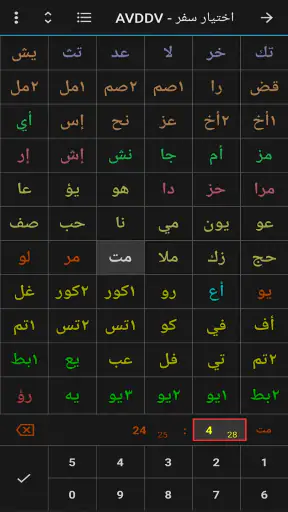 اختيار سفر - AVDDV
تك خر لا عد تث يش
قض را ١صم ٢صم ١مل ٢مل
١أخ ٢أخ عز نح إس أي
مز أم جا نش إش إر
مرا حز دا هو يؤ عا
عو يون مي نا حب صف
حج زك ملا مت مر لو
يو أع رو ١كور ٢كور غل
أف في كو ١تس ٢تس ١تم
٢تم تي فل عب يع ١بط
٢بط ١يو ٢يو ٣يو يه رؤ
مت 4 28 : 24 25
1 2 3 4 5
6 7 8 9 0